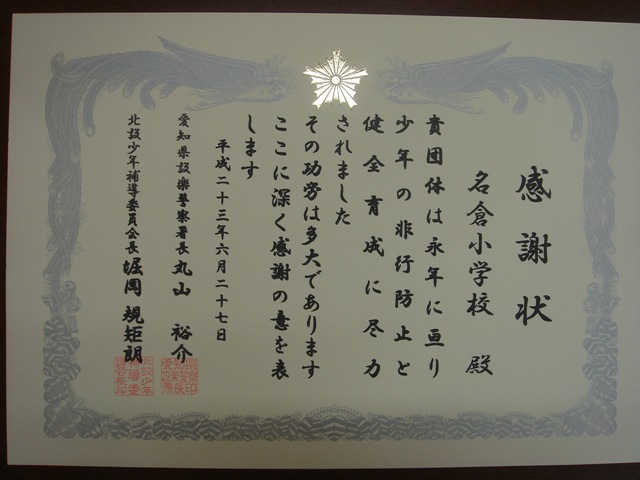 感謝状
名倉小学校 殿
貴団体は永年に亘り
少年の非行防止と
健全育成に尽力
されました
その功労は多大であります
ここに深く感謝の意を表
します
平成二十三年六月二十七日
愛知県設楽警察署長 丸山 裕介
北設少年補導委員会長 堀岡 規矩朗